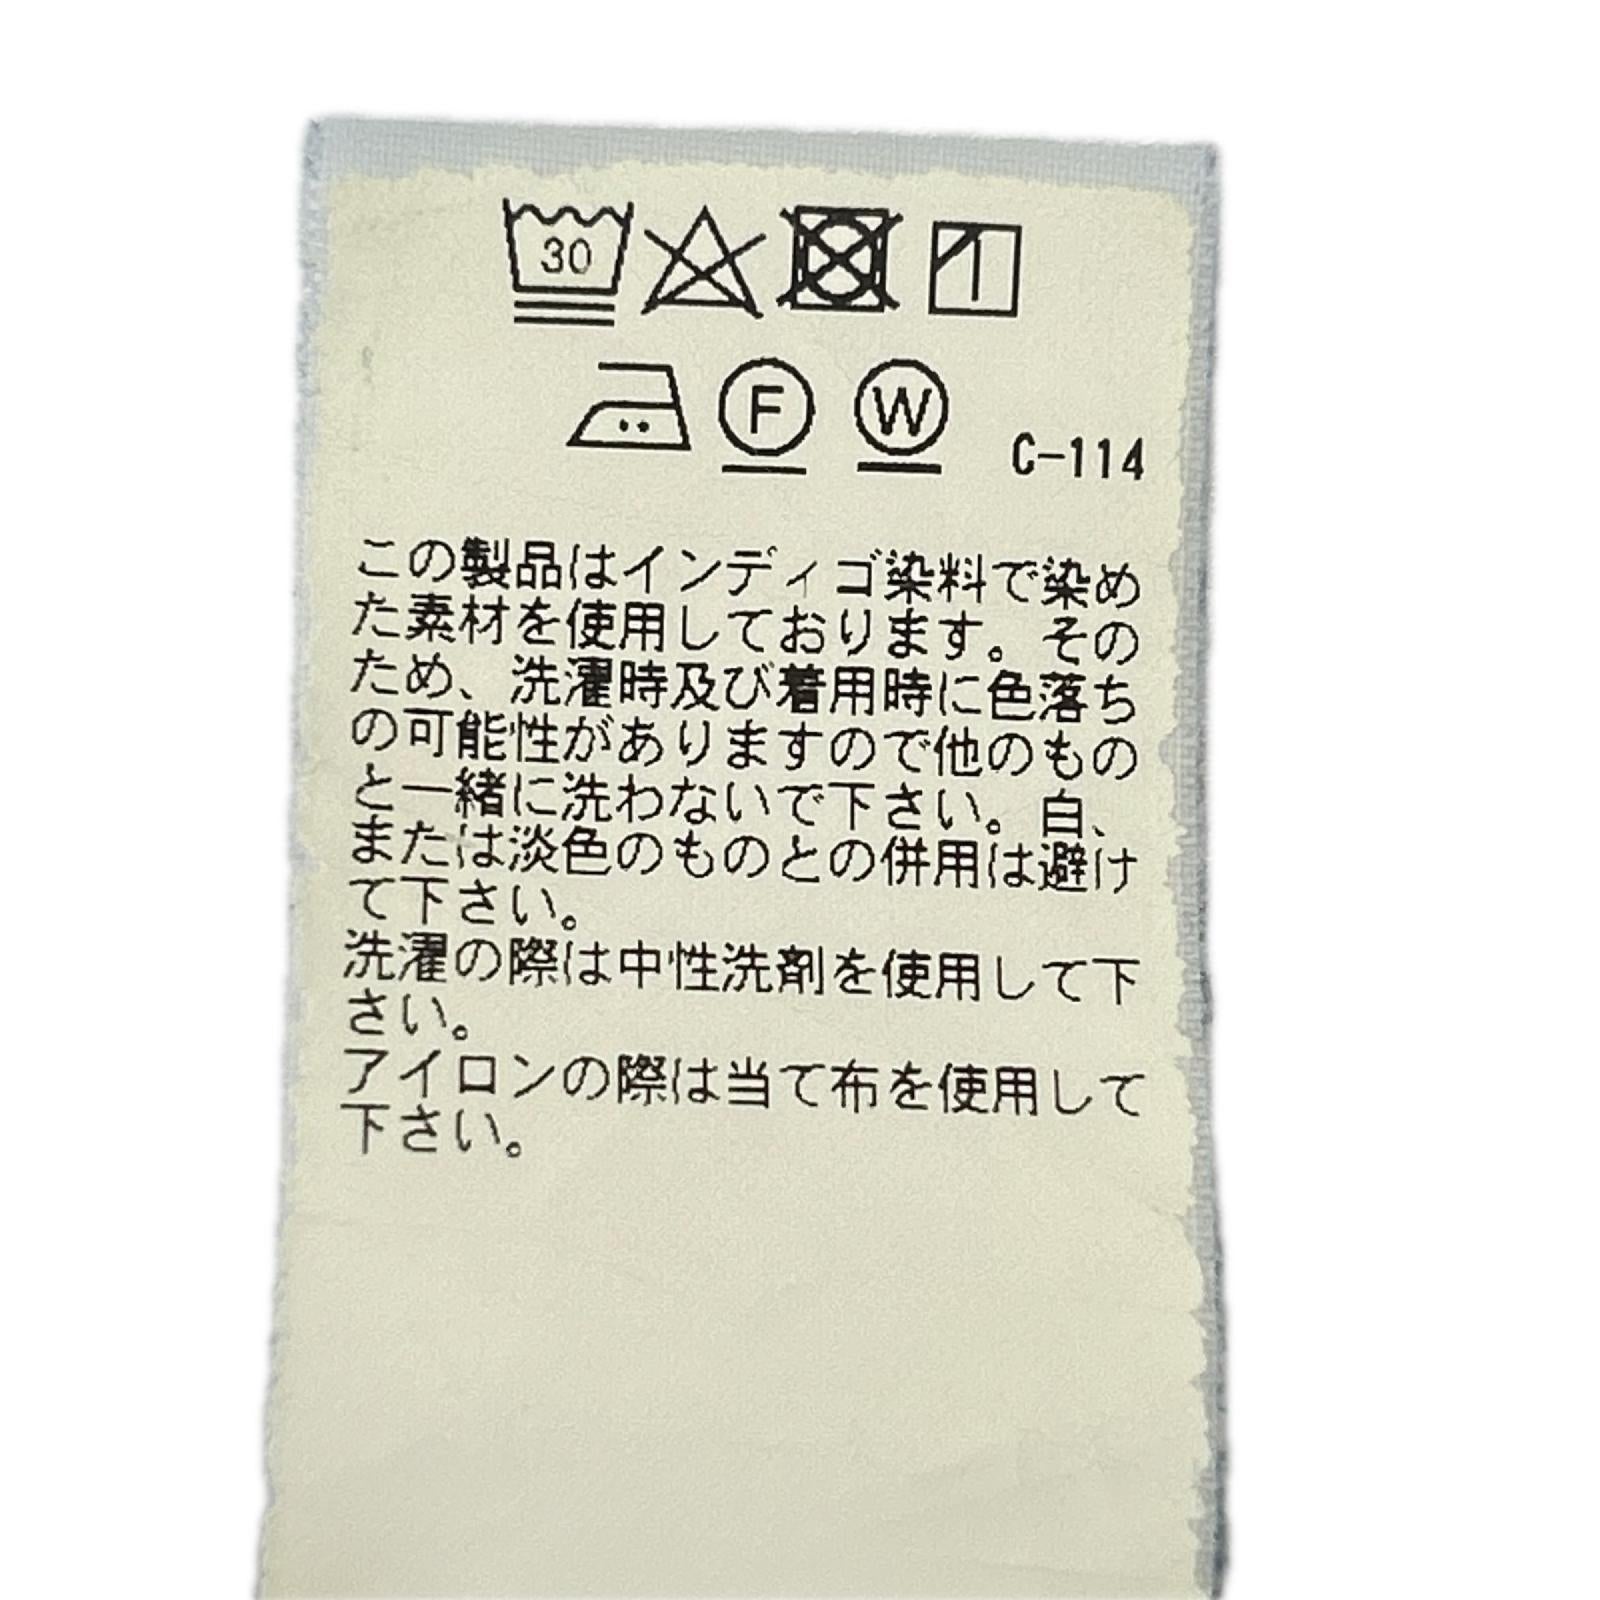 30
F W C-114
この製品はインディゴ染料で染め
た素材を使用しております。その
ため、洗濯時及び着用時に色落ち
の可能性がありますので他のもの
と一緒に洗わないで下さい。白、
または淡色のものとの併用は避け
て下さい。
洗濯の際は中性洗剤を使用して下
さい。
アイロンの際は当て布を使用して
下さい。